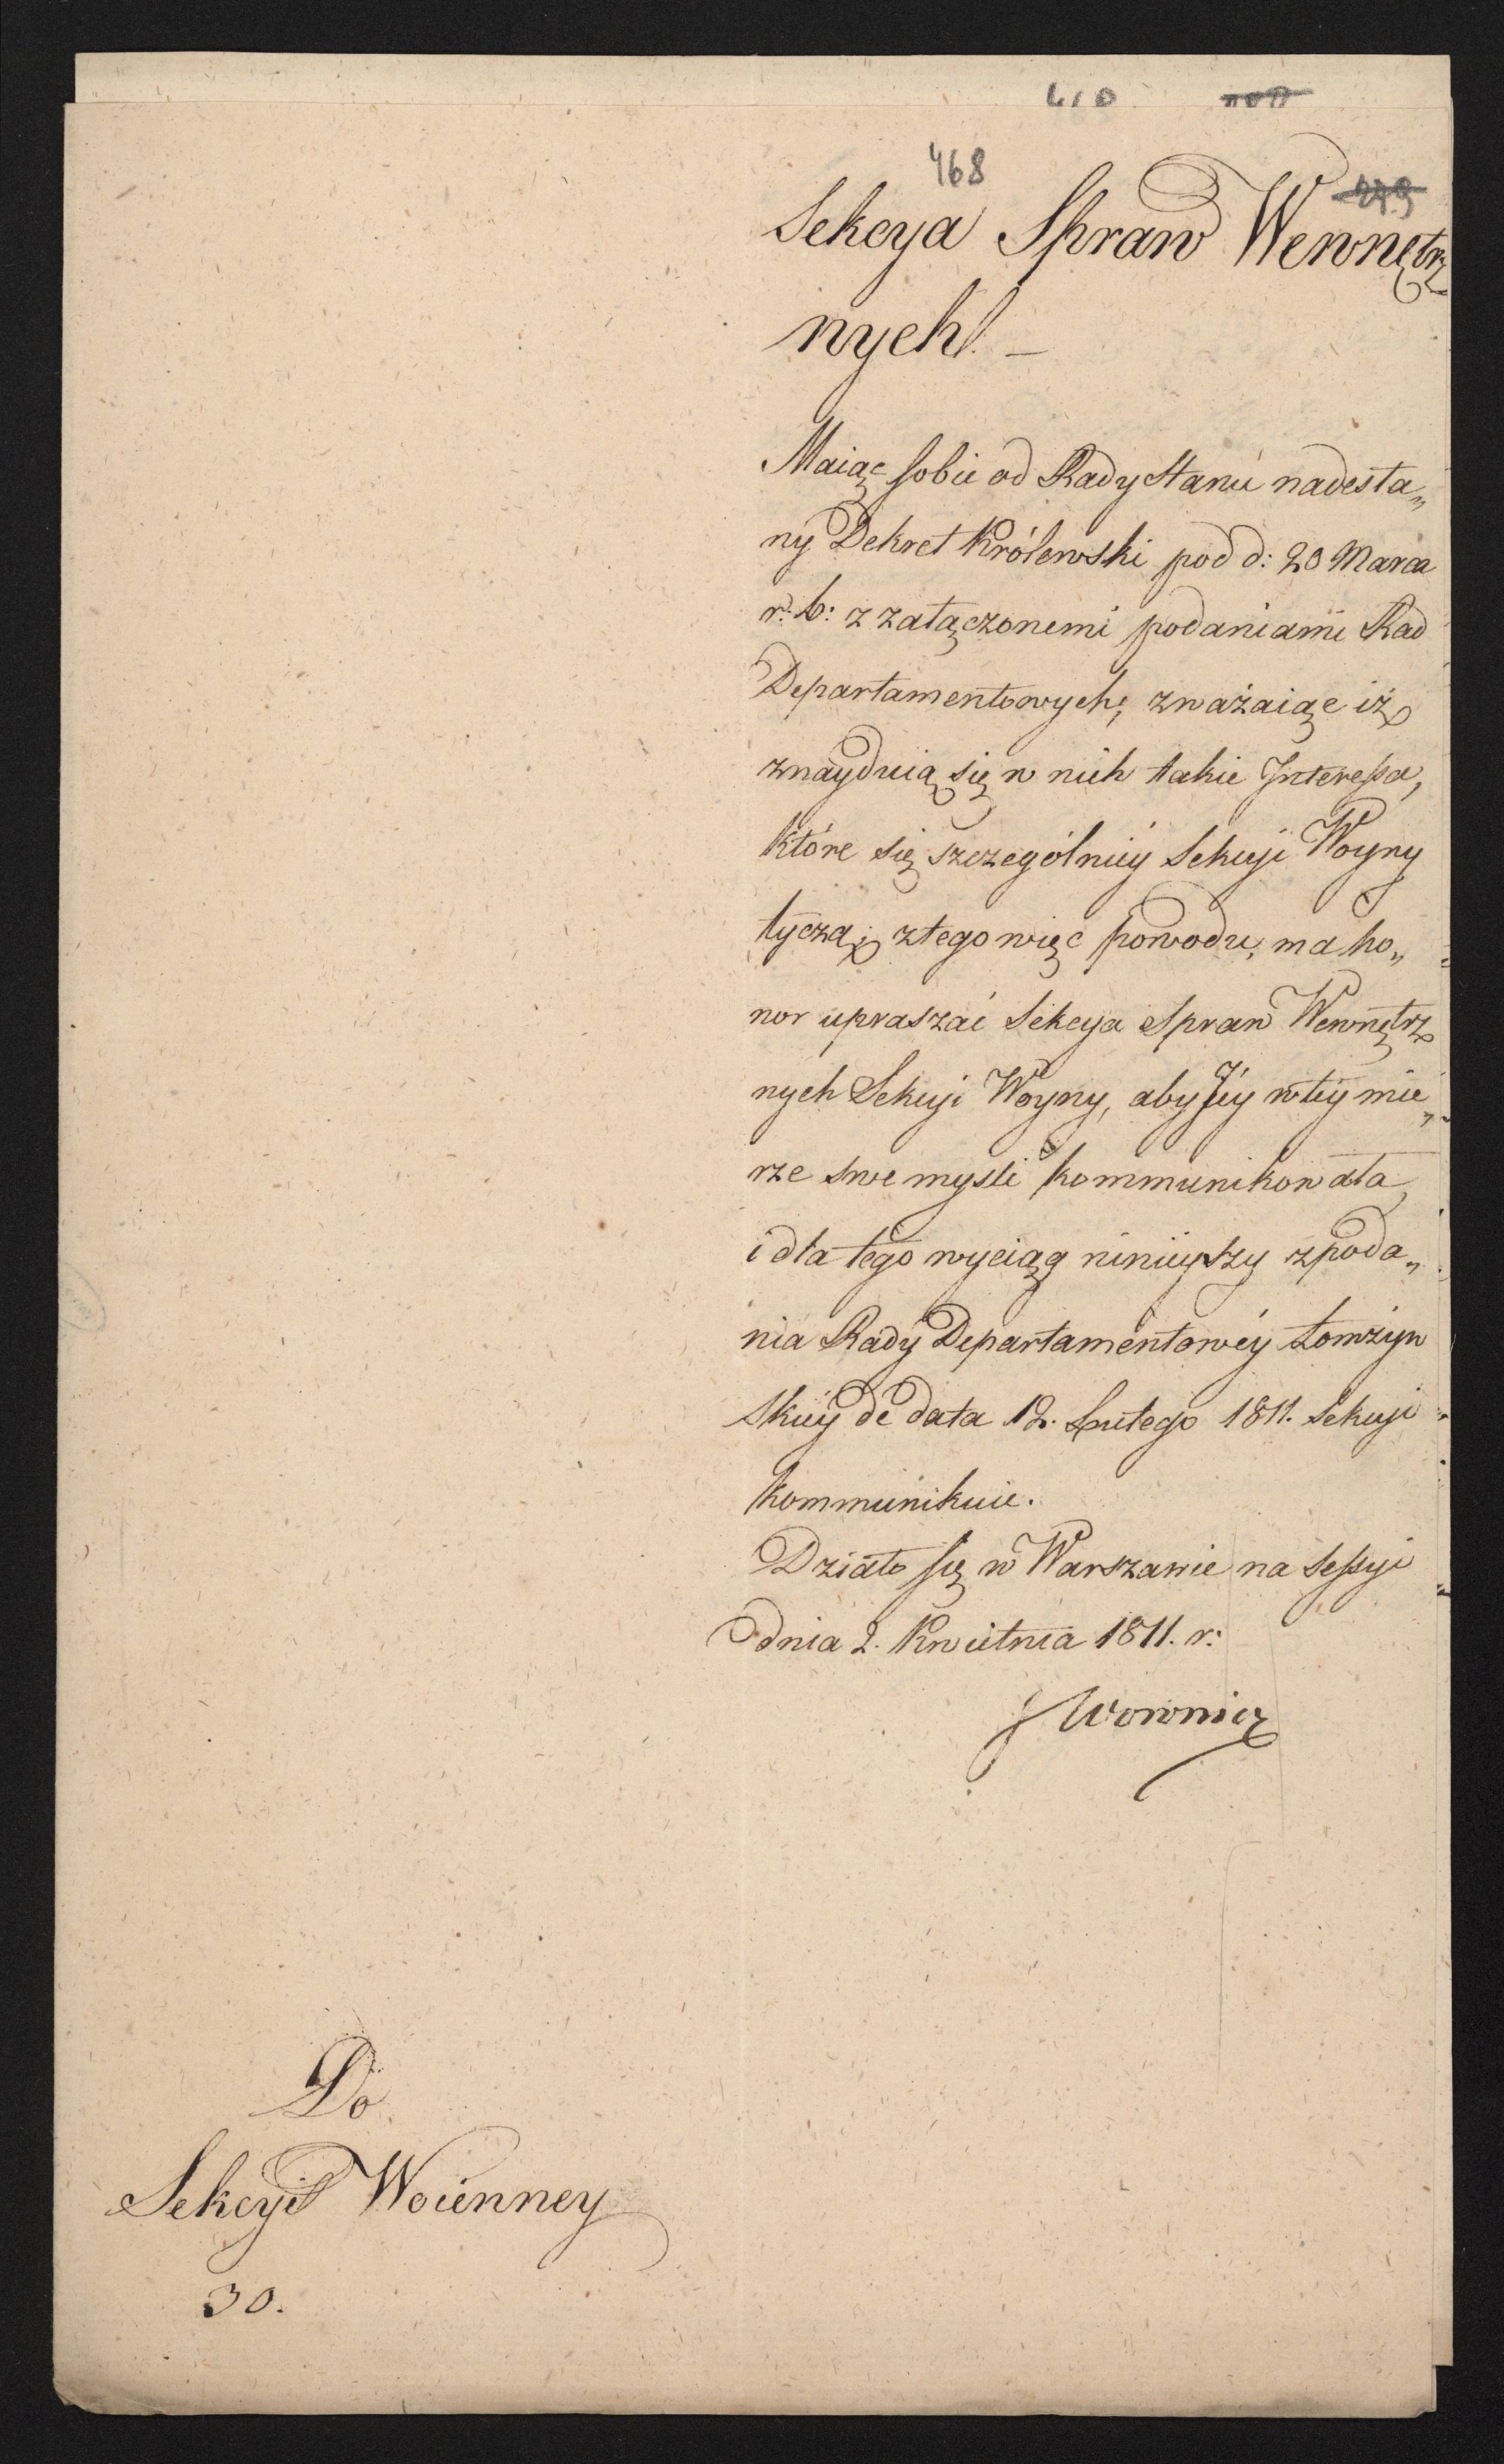 468
Sekcya Spraw Wewnętrz
nych. —
Maiąc sobie od Rady Stanu nadesła„
ny Dekret Królewski pod d: 20 Marca
r: b: z załączonemi podaniami Rad
Departamentowych, zważaiąc iż
znayduią się w nich takie Interessa,
które się szczególniéy Sekcyi Woyny
tyczą; z tego więc powodu, ma ho„
nor upraszać Sekcya Spraw Wewnętrz
nych Sekcyi Woyny, aby Jéy w téy mie„
rze swe myśli kommunikowała,
i dla tego wyciąg ninieyszy z poda„
nia Rady Departamentowéy Łomżyn
skiéy de data 12. Lutego 1811. Sekcyi
kommunikuie.
Działo się w Warszawie na Sessyi
dnia 2. Kwietnia 1811. r:
J Woronicz
Do
Sekcyi Woienney
30.